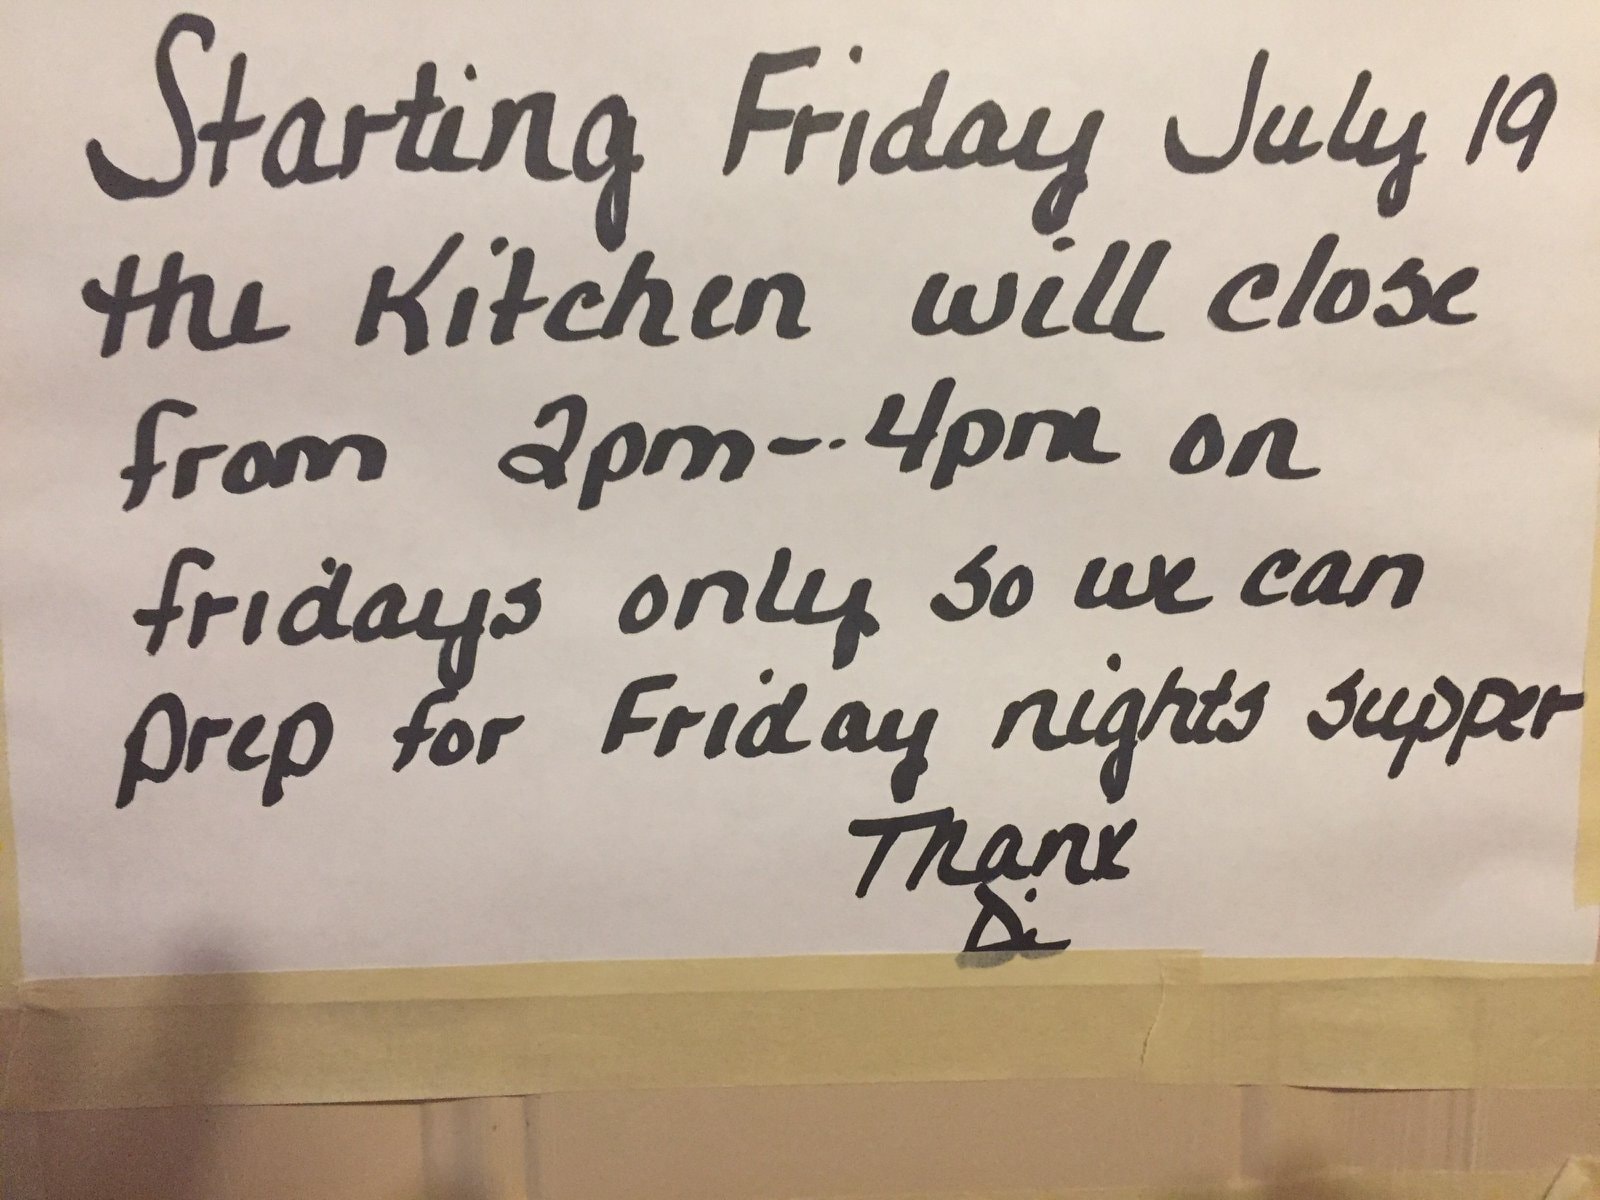 Starting Friday July 19
the Kitchen will close
from 2pm-.4pm on
fridays only so we can
prep for Friday nights supper
Thanx
Di